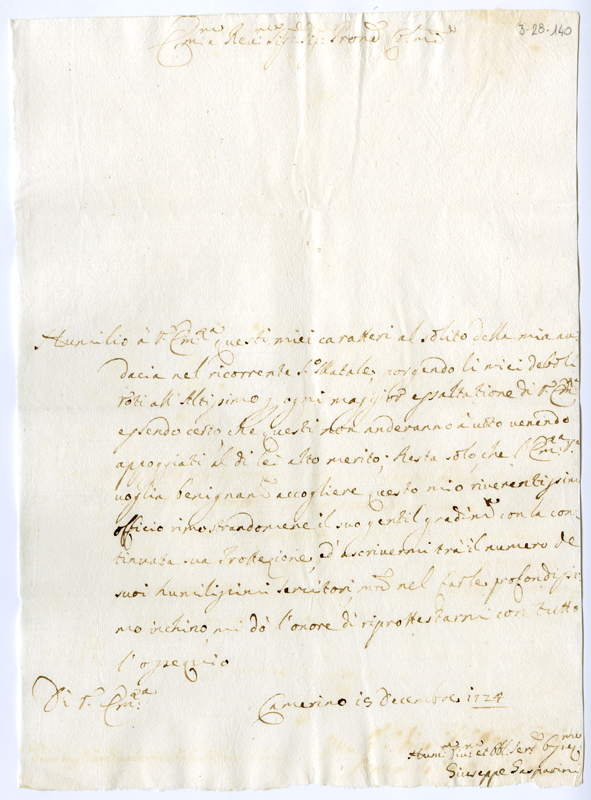 3-28-140
Em.ne e Reu.mo Sig.re Sig.r Pron.e Col.mo
Aumilio à V.ra Em.za questi miei caratteri al solito della mia au
dacia nel ricorrente S.to Natale, porgendo li miei deboli
voti all'Altissimo p ogni magg.re essaltatione di V.ra Em.za
essendo certo che questi non anderanno à vuoto venendo
appoggiati al di lei alto merito; Resta solo, che l'Em.za V.ra
voglia benignam.te accogliere questo mio riverentissimo
officio rimostrandomene il suo gentil gradim.to con la con
tinuata sua Prottezione, ed' ascrivermi trà il numero de
suoi humilissimi servitori, m.re nel farle profondissi
mo inchino mi dò l'onore di riprottestarmi con tutto
l'ossequio
Di V.ra Em.za
Camerino 15 Decembre 1724
Hum.mo Diu.mo et Obl. Ser.re
Giuseppe Gasparini